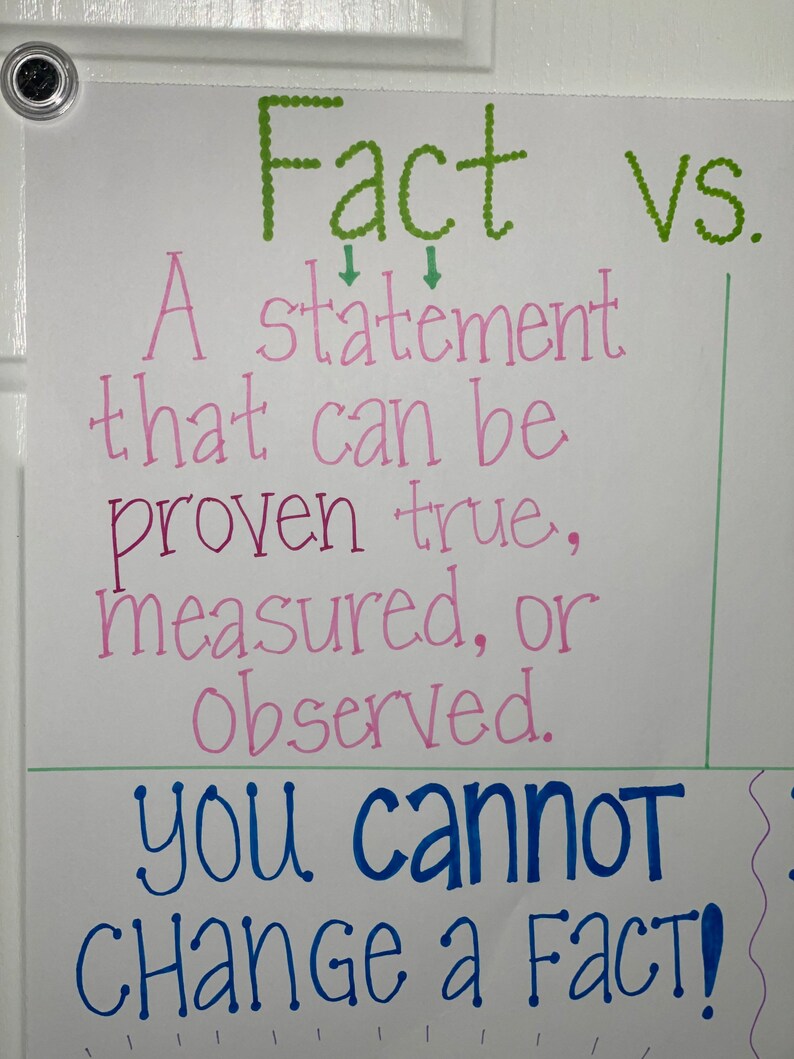 Fact vs.
A statement
that can be
proven true,
measured, or
observed.
YOU CANNOT
CHANGE A FACT!